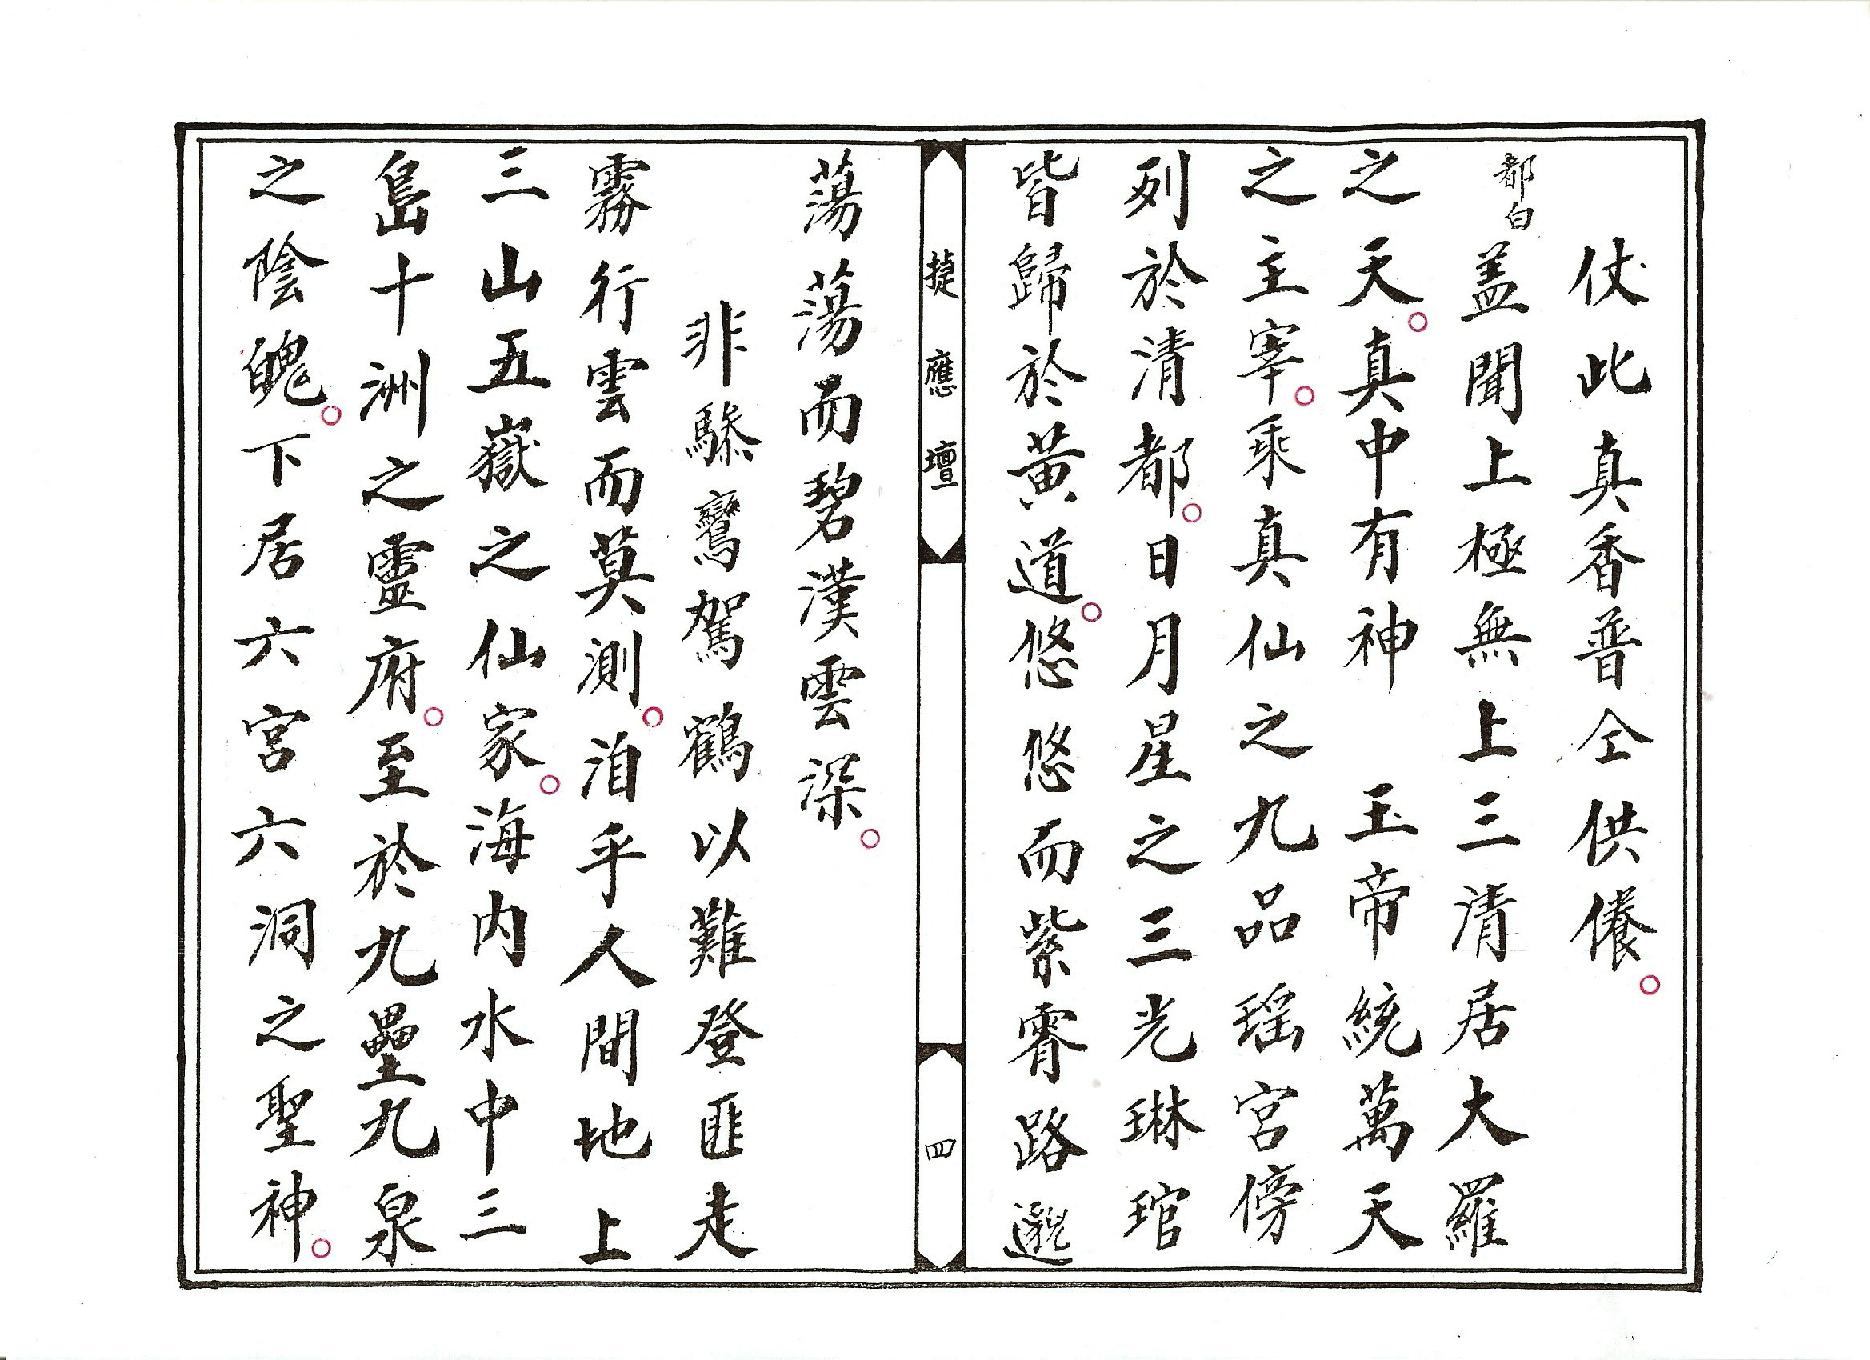 仗此真香普仝供養。
都白
盖聞上極無上三清居大羅
之天。真中有神 玉帝統萬天
之主宰。乘真仙之九品瑶宫傍
列於清都。日月星之三光琳琯
皆歸於黄道。悠悠而紫霄路邈
捷應壇
四
蕩蕩而碧漢雲深。
非驂鸞駕鶴以難登匪走
霧行雲而莫測。洎乎人間地上
三山五嶽之仙家。海内水中三
島十洲之靈府。至於九壘九泉
之陰魄。下居六宫六洞之聖神。